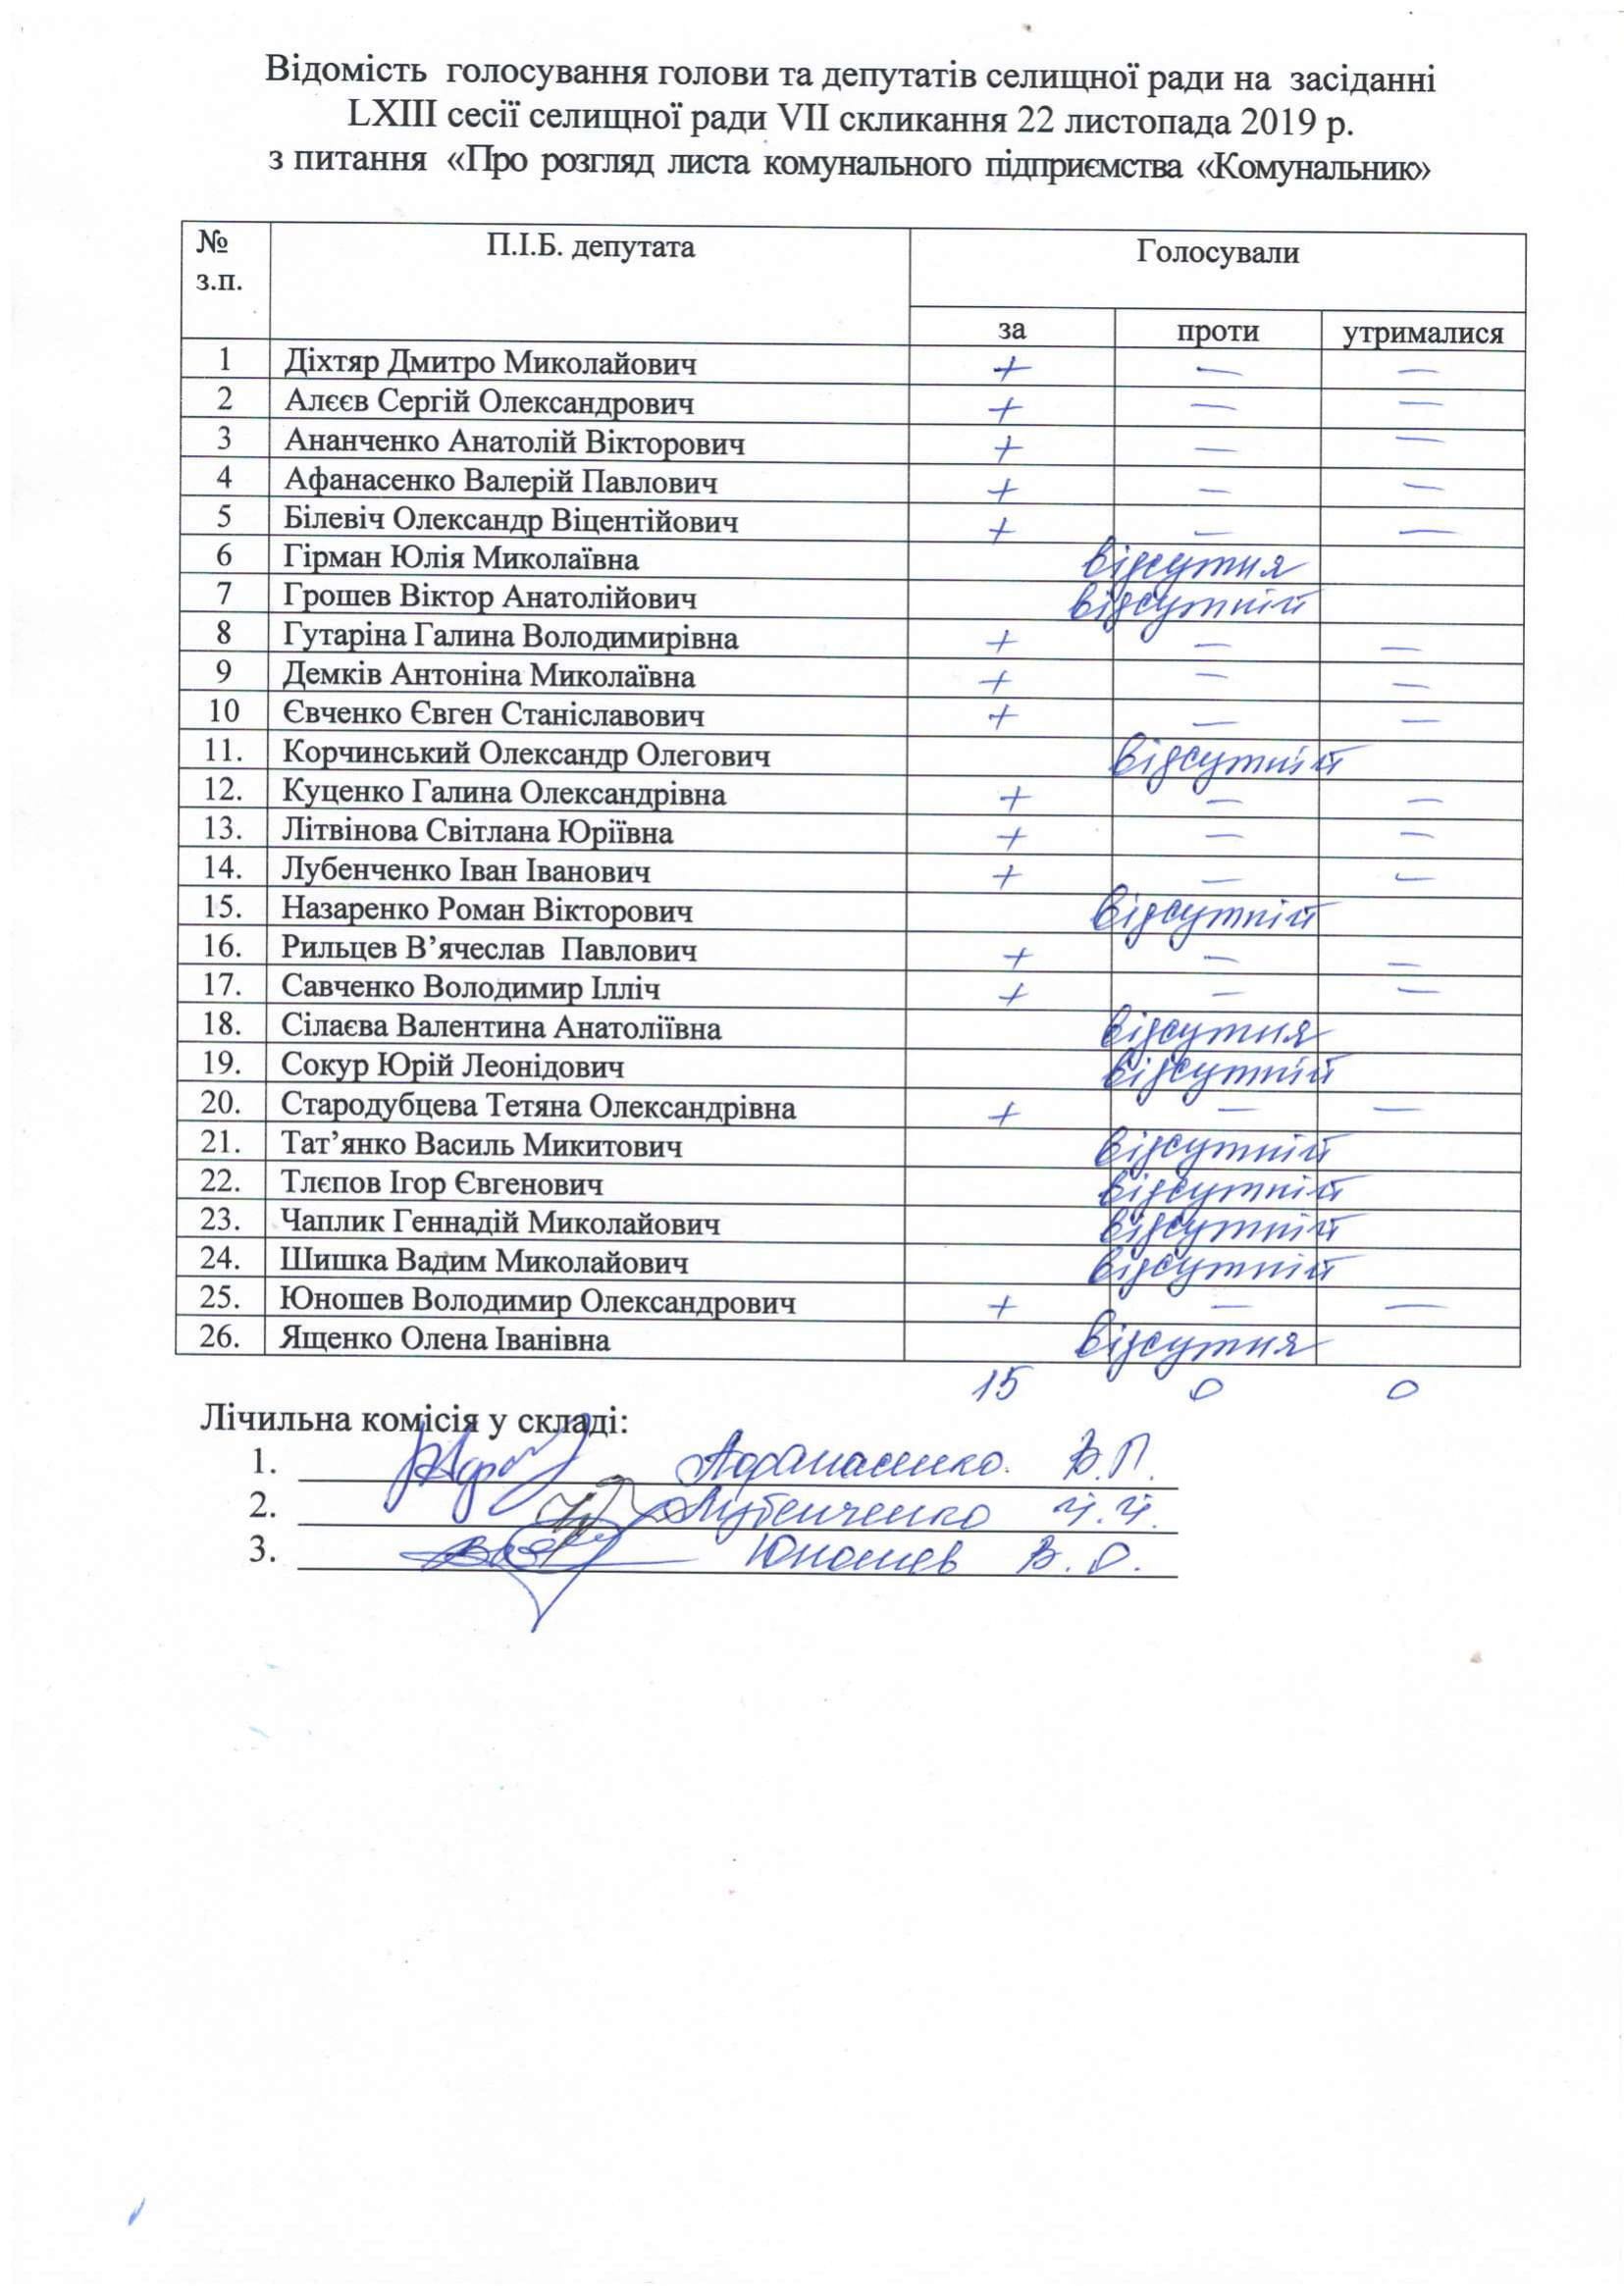 Відомість голосування голови та депутатів селищної ради на засіданні
LXIII сесії селищної ради VII скликання 22 листопада 2019 р.
з питання «Про розгляд листа комунального підприємства «Комунальник»
№ з.п. П.І.Б. депутата Голосували
за проти утрималися
1 Діхтяр Дмитро Миколайович + — —
2 Алєєв Сергій Олександрович + — —
3 Ананченко Анатолій Вікторович + — —
4 Афанасенко Валерій Павлович + — —
5 Білевіч Олександр Віцентійович + — —
6 Гірман Юлія Миколаївна відсутня
7 Грошев Віктор Анатолійович відсутній
8 Гутаріна Галина Володимирівна + — —
9 Демків Антоніна Миколаївна + — —
10 Євченко Євген Станіславович + — —
11. Корчинський Олександр Олегович відсутній
12. Куценко Галина Олександрівна + — —
13. Літвінова Світлана Юріївна + — —
14. Лубенченко Іван Іванович + — —
15. Назаренко Роман Вікторович відсутній
16. Рильцев В’ячеслав Павлович + — —
17. Савченко Володимир Ілліч + — —
18. Сілаєва Валентина Анатоліївна відсутня
19. Сокур Юрій Леонідович відсутній
20. Стародубцева Тетяна Олександрівна + — —
21. Тат’янко Василь Микитович відсутній
22. Тлєпов Ігор Євгенович відсутній
23. Чаплик Геннадій Миколайович відсутній
24. Шишка Вадим Миколайович відсутній
25. Юношев Володимир Олександрович + — —
26. Ященко Олена Іванівна відсутня
15 0 0
Лічильна комісія у складі:
1. Афанасенко В.П.
2. Лубенченко І.І.
3. Юношев В.О.